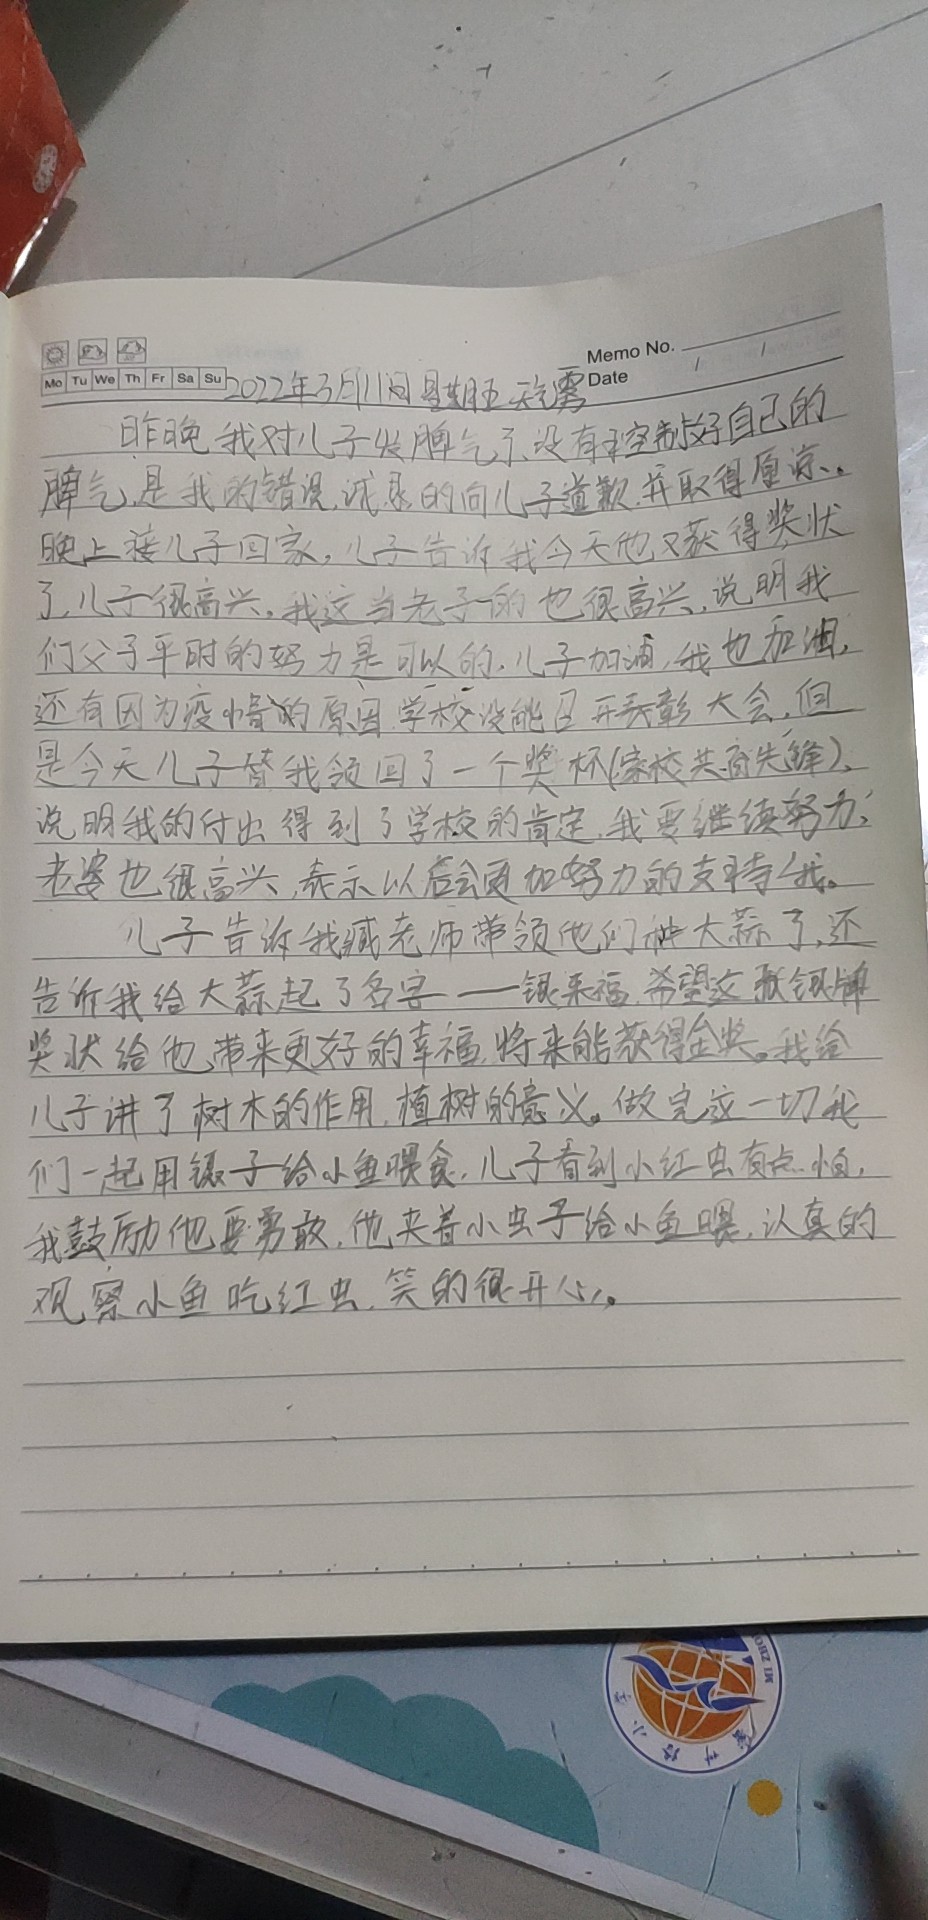 Memo No.
Mo Tu We Th Fr Sa Su
Date / /
2022年3月11日 星期五 天气雾
昨晚我对儿子发脾气了、没有控制好自己的
脾气,是我的错误,诚恳的向儿子道歉,并取得原谅、。
晚上接儿子回家,儿子告诉我今天他又获得奖状
了,儿子很高兴。我这当老子的也很高兴,说明我
们父子平时的努力是可以的,儿子加油,我也加油,
还有因为疫情的原因,学校没能召开表彰大会,但
是今天儿子替我领回了一个奖杯(家校共育先锋)、
说明我的付出得到了学校的肯定,我要继续努力,
老婆也很高兴,表示以后会更加努力的支持我。
儿子告诉我臧老师带领他们种大蒜了,还
告诉我给大蒜起了名字——银来福,希望这张银牌
奖状给他带来更好的幸福,将来能获得金奖。我给
儿子讲了树木的作用,植树的意义。做完这一切我
们一起用镊子给小鱼喂食,儿子看到小红虫有点怕,
我鼓励他要勇敢,他夹着小虫子给小鱼喂,认真的
观察小鱼吃红虫,笑的很开心。